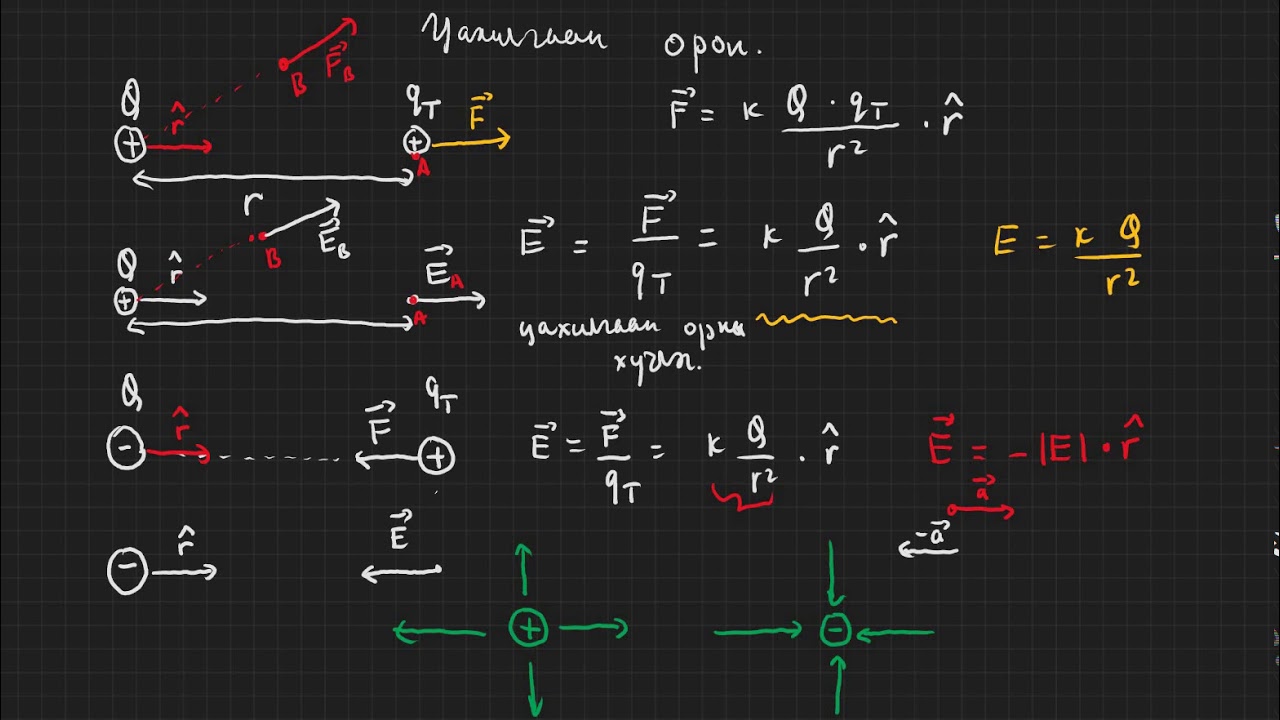 Цахилгаан орон.
F⃗_B
B
Q
r̂
q_T
F⃗
A
F⃗ = k Q · q_T / r² · r̂
r
E⃗_B
B
Q
r̂
E⃗_A
A
E⃗ = F⃗ / q_T = k Q / r² · r̂
E = k Q / r²
цахилгаан орны
хүчлэг.
Q
r̂
F⃗
q_T
E⃗ = F⃗ / q_T = k Q / r² · r̂
E⃗ = -|E| · r̂
a⃗
-a⃗
r̂
E⃗